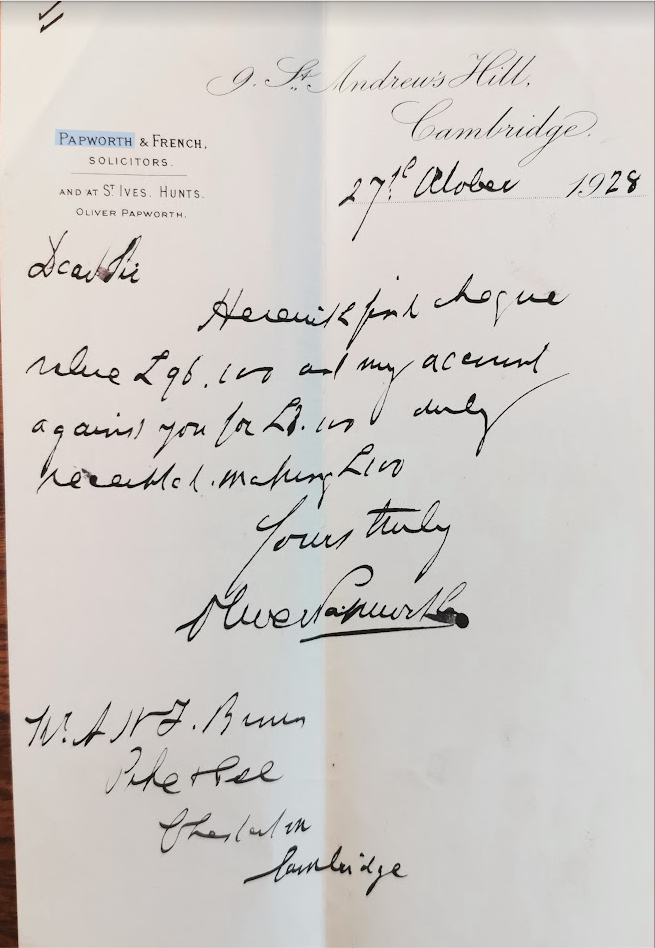 9. St. Andrew's Hill,
Cambridge.
PAPWORTH & FRENCH,
SOLICITORS.
AND AT ST. IVES. HUNTS.
OLIVER PAPWORTH.
27th October 1928
Dear Sir
Herewith find cheque
value £96. and my account
against you for duly
receipted. making £100
Yours truly
Oliver Papworth.
Mr. A
Pike & Eel
Chesterton
Cambridge